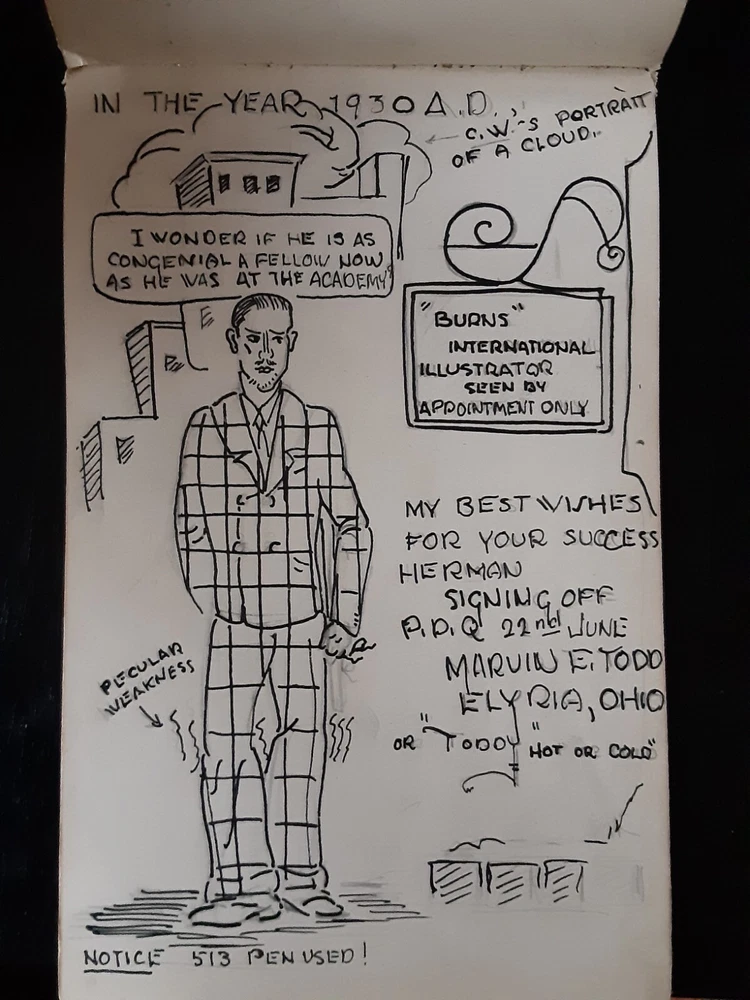 IN THE YEAR 1930 A.D.,
C.W.-S PORTRAIT
OF A CLOUD.
I WONDER IF HE IS AS
CONGENIAL A FELLOW NOW
AS HE WAS AT THE ACADEMY
"BURNS"
INTERNATIONAL
ILLUSTRATOR
SEEN BY
APPOINTMENT ONLY
MY BEST WISHES
FOR YOUR SUCCESS
HERMAN
SIGNING OFF
P.D.Q 22nd JUNE
MARVIN E. TODD
ELYRIA, OHIO
OR "TODDY" "HOT OR COLD"
PECULAR
WEAKNESS
NOTICE 513 PEN USED!